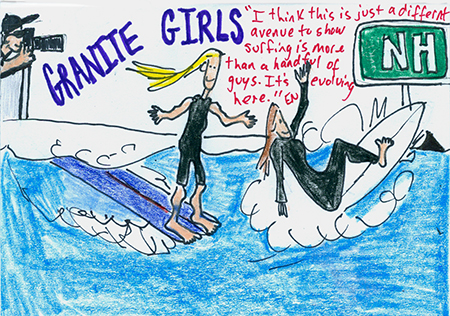 GRANITE GIRLS
"I think this is just a differnt
avenue to show
surfing is more
than a handful of
guys. It's evolving
here." EN
NH